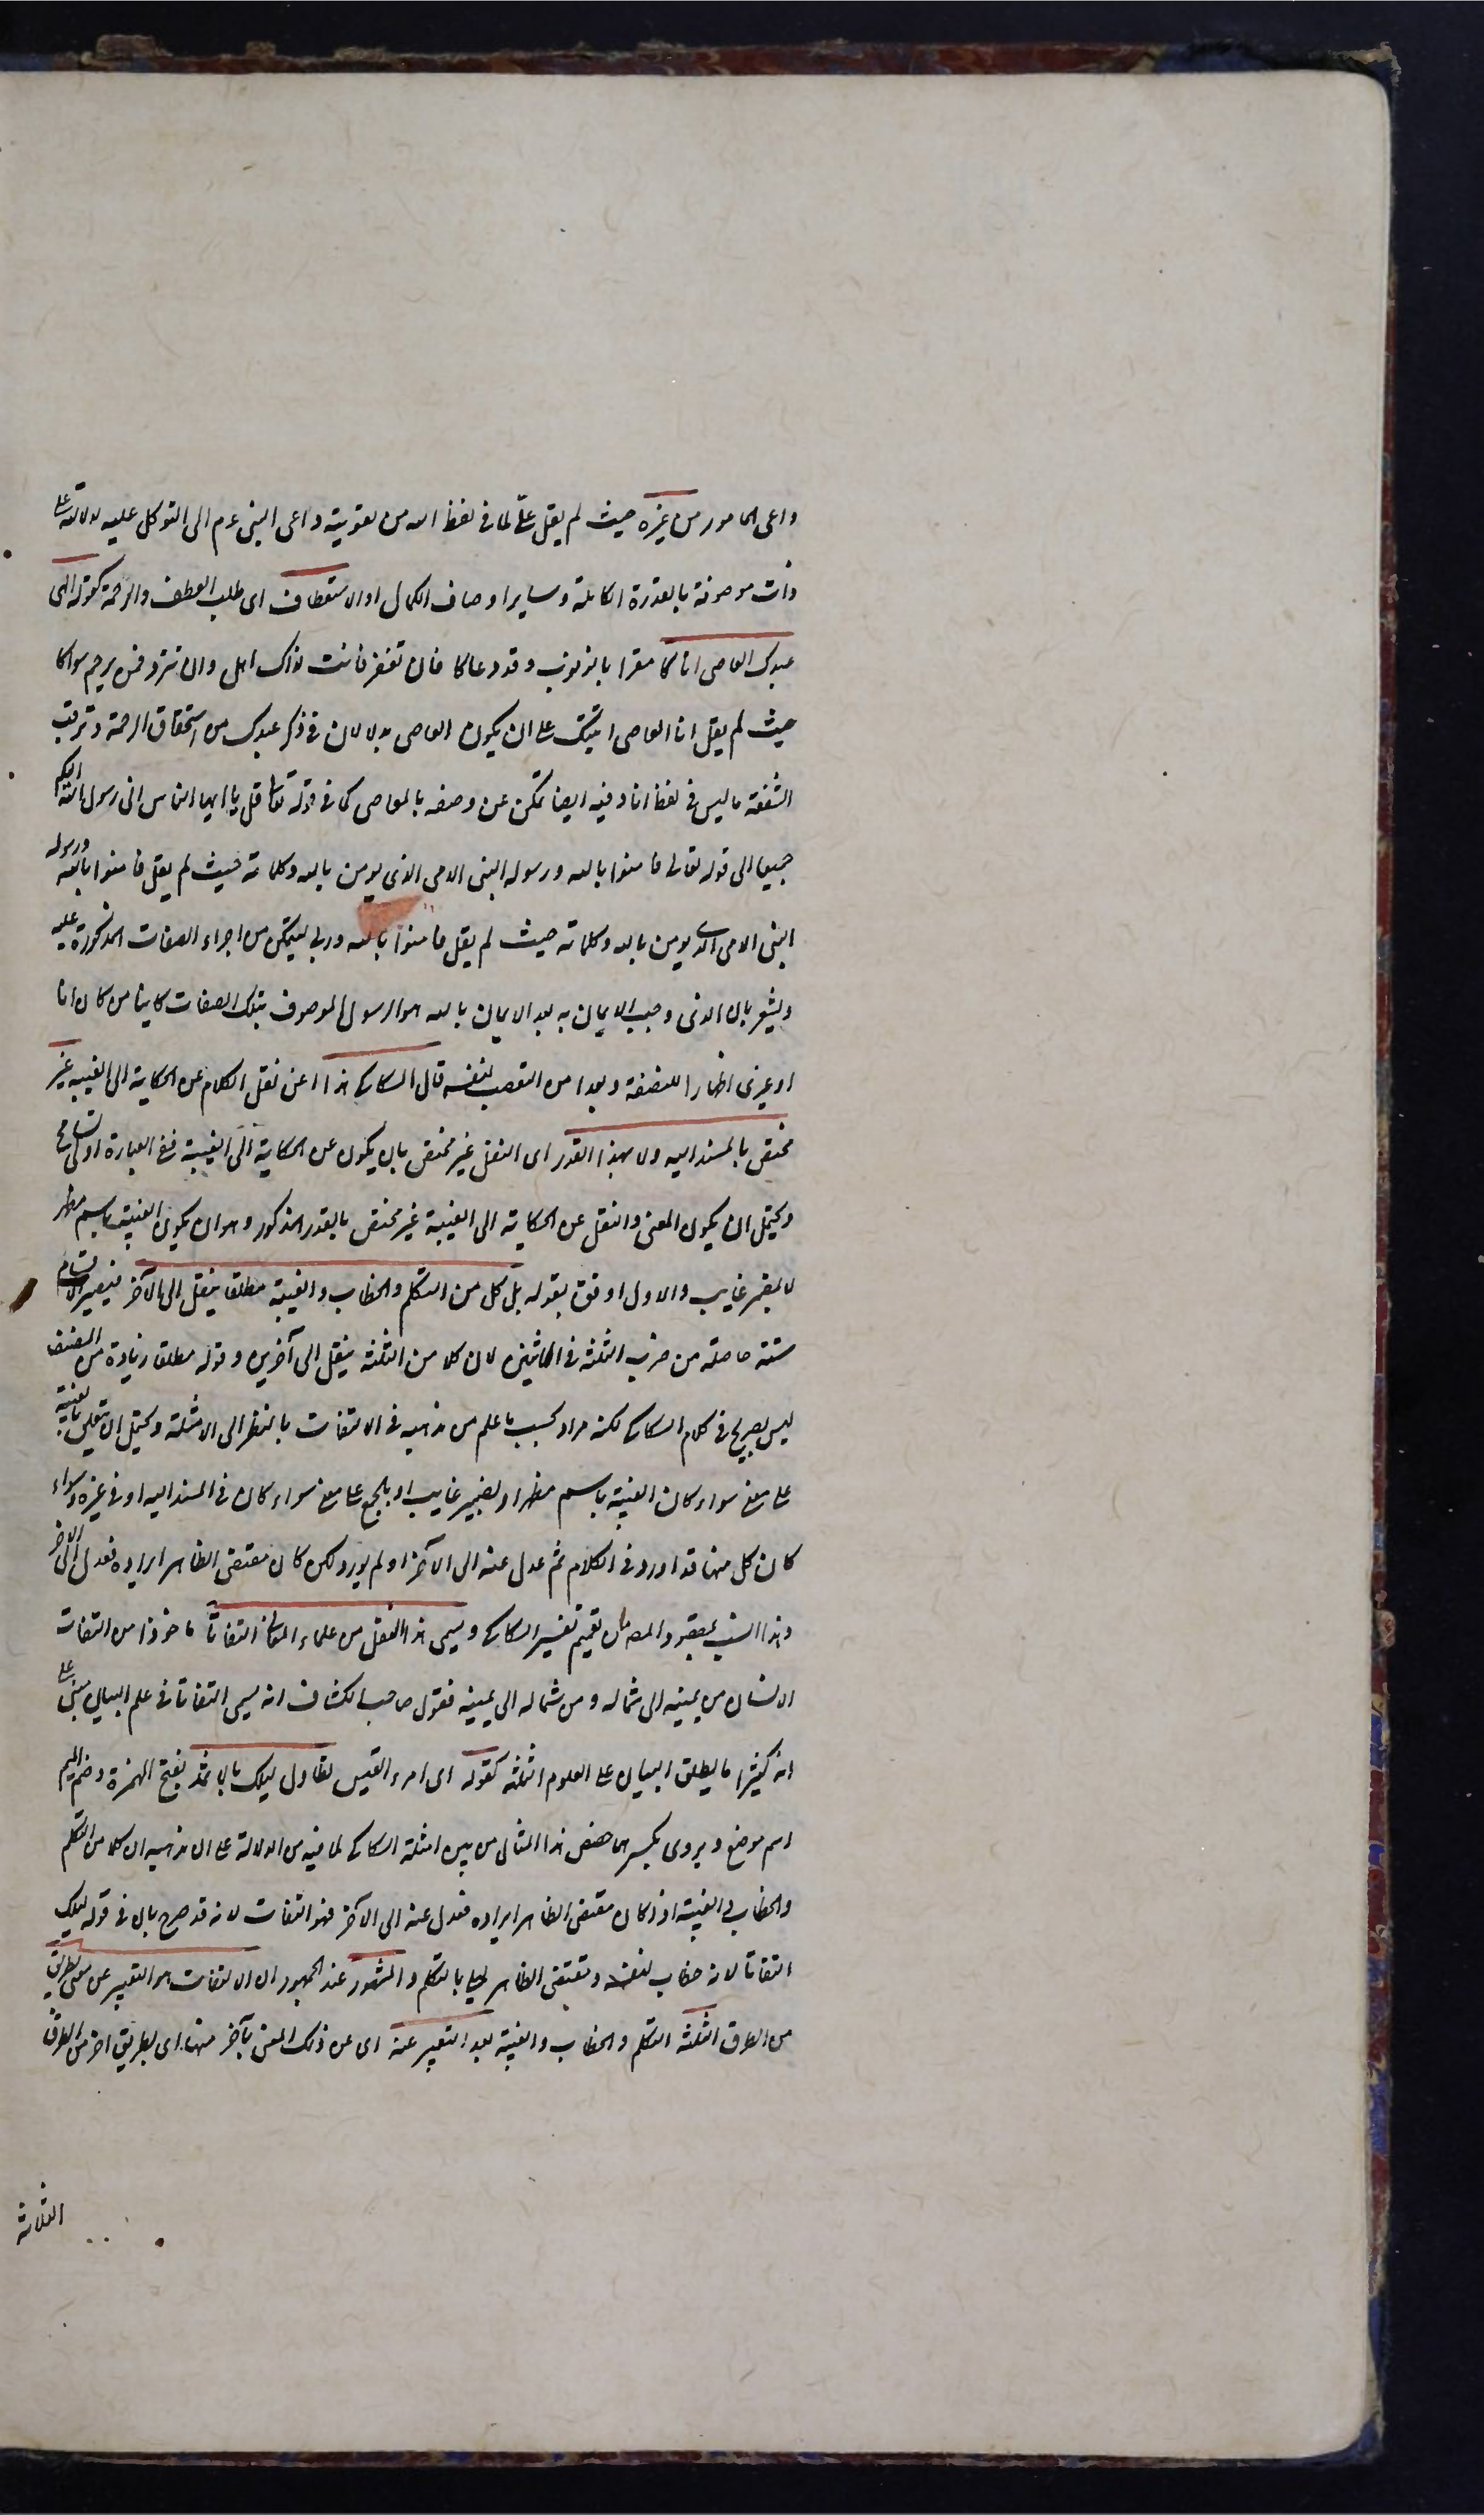 داعى المامور من غيره حيث لم يقل علىّ لما فى لفظ الله من تقوية داعى النبى عم الى التوكل عليه لدلالته على
ذات موصوفة بالقدرة الكاملة وساير اوصاف الكمال او الاستعطاف اى طلب العطف والرحمة كقوله الهى
عبدك العاصى اتاكا مقرا بالذنوب وقد دعاكا فان تغفر فانت لذاك اهل وان تترد فمن يرحم سواكا
حيث لم يقل انا العاصى اتيتك على ان يكون العاصى بدلا لان فى ذكر عبدك من استحقاق الرحمة وترقب
الشفقة ما ليس فى لفظ انا وفيه ايضا تمكن عن وصفه بالعاصى كما فى قوله تعالى قل يا ايها الناس انى رسول الله اليكم
جميعا الى قوله تعالى فامنوا بالله ورسوله النبى الامى الذى يومن بالله وكلماته حيث لم يقل فامنوا بالله ورسوله
النبى الامى الذى يومن بالله وكلماته حيث لم يقل فامنوا بالله وربى ليتمكن من اجراء الصفات المذكورة عليه
ويشعر بان الذى وجب الايمان به بعد الايمان بالله هو الرسول الموصوف بتلك الصفات كاينا من كان انا
او غيرى اظهارا للنصفة وبعدا من التعصب لنفسه قال السكاكى هذا اعنى نقل الكلام عن الحكاية الى الغيبة غير
مختص بالمسند اليه ولا بهذا القدر اى النقل غير مختص بان يكون عن الحكاية الى الغيبة ففى العبارة ادنى تسامح
ويحتمل ان يكون المعنى والنقل عن الحكاية الى الغيبة غير مختص بالقدر المذكور وهو ان يكون الغيبة باسم مظهر
لا بمضمر غايب والاول اوفق بقوله بل كل من التكلم والخطاب والغيبة مطلقا ينقل الى الآخر فيصير الاقسام
ستة حاصلة من ضرب الثلثة فى الاثنين لان كلا من الثلثة ينقل الى آخرين وقوله مطلقا زيادة من المصنف
ليس بصريح فى كلام السكاكى لكنه مراد بحسب ما علم من مذهبه فى الالتفات بالنظر الى الامثلة ويحتمل ان يتعلق بالغيبة
على معنى سواء كان الغيبة باسم مظهر او بضمير غايب او بالجمع على معنى سواء كان فى المسند اليه او فى غيره وسواء
كان كل منها قد اورد فى الكلام ثم عدل عنه الى الآخر او لم يورد لكن كان مقتضى الظاهر ايراده فعدل الى الاخر
وهذا انسب بمقصود المص من تعميم تفسير السكاكى ويسمى هذا النقل من علماء المعانى التفاتا ماخوذا من التفات
الانسان من يمينه الى شماله ومن شماله الى يمينه فقول صاحب الكشاف انه يسمى التفاتا فى علم البيان مبنى على
انه كثيرا ما يطلق البيان على العلوم الثلثة كقوله اى امرء القيس تطاول ليلك بالاثمد بفتح الهمزة وضم الميم
اسم موضع ويروى بكسرهما خص هذا المثال من بين امثلة السكاكى لما فيه من الدلالة على ان مذهبه ان كلا من التكلم
والخطاب والغيبة اذا كان مقتضى الظاهر ايراده فعدل عنه الى الآخر فهو التفات لانه قد صرح بان فى قوله ليلك
التفاتا لانه خطاب لنفسه ومقتضى الظاهر ليلى بالتكلم والمشهور عند الجمهور ان الالتفات هو التعبير عن معنى بطريق
من الطرق الثلثة التكلم والخطاب والغيبة بعد التعبير عنه اى عن ذلك المعنى بآخر منها اى بطريق اخر من الطرق
الثلاثة